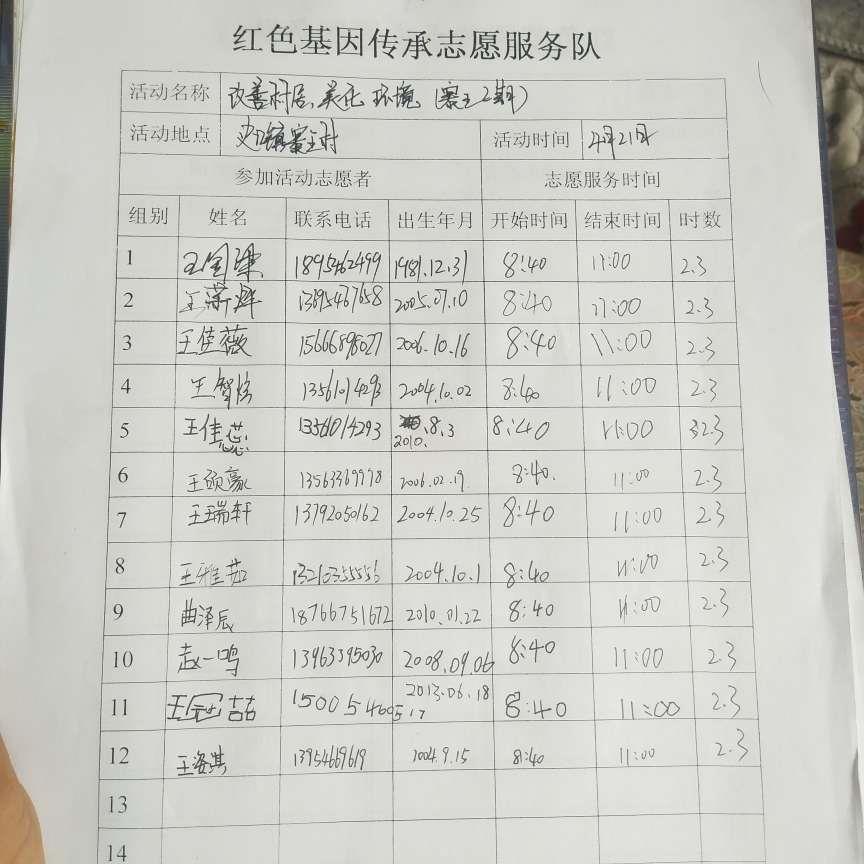 红色基因传承志愿服务队
活动名称 改善村居,美化环境(寨王2期)
活动地点 史口镇寨王村 活动时间 4月21日
参加活动志愿者 志愿服务时间
组别 姓名 联系电话 出生年月 开始时间 结束时间 时数
1 王 1895462499 1981.12.31 8:40 11:00 2.3
2 王 13895467658 2005.07.10 8:40 11:00 2.3
3 王佳薇 15666898027 2006.10.16 8:40 11:00 2.3
4 王智 13561014293 2004.10.02 8:40 11:00 2.3
5 王佳蕊 13561014293 2010.8.3 8:40 11:00 2.3
6 王硕豪 13563369978 2006.02.19 8:40. 11:00 2.3
7 王瑞轩 13792050162 2004.10.25 8:40 11:00 2.3
8 王雅茹 13210355556 2004.10.1 8:40 11:00 2.3
9 曲泽辰 18766751672 2010.01.22 8:40 11:00 2.3
10 赵一鸣 13963395030 2008.09.06 8:40 11:00 2.3
11 王冠喆 15005460517 2013.06.18 8:40 11:00 2.3
12 王姿淇 13954669619 2004.9.15 8:40 11:00 2.3
13
14